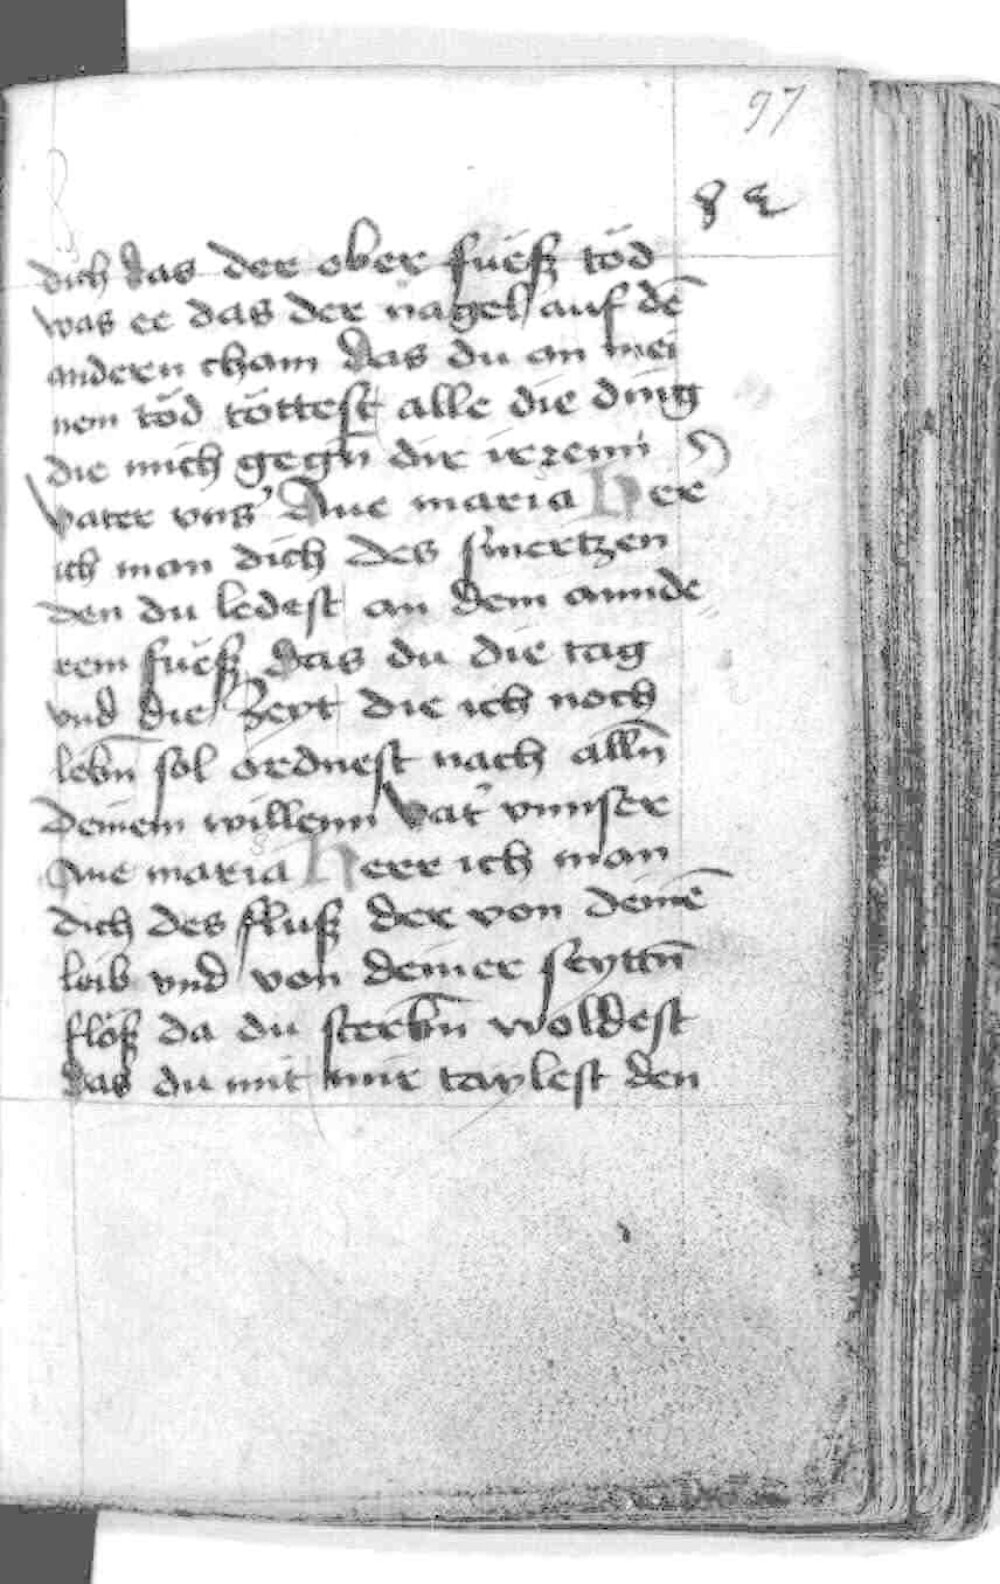 97
82
dich das der ober fuëſz töd
was ee das der nagel auf dē
andern cham das du an mei
nem töd töttest alle die ding
die mich gegn̄ dir irrenn
Vater vns' Aue maria Her
ich man dich des smertzen
den du ledest an dem annde
rem fuëſz das du die tag
vnd die Zeyt die ich noch
lebn̄ sol ordnest nach alln̄
deinem willenn Vat' vnnser
Aue maria Herr ich man
dich des fluſz der von deinē
leib vnd von deiner seyttn̄
flöſz da du sterbn̄ woldest
das du mit mir taylest den